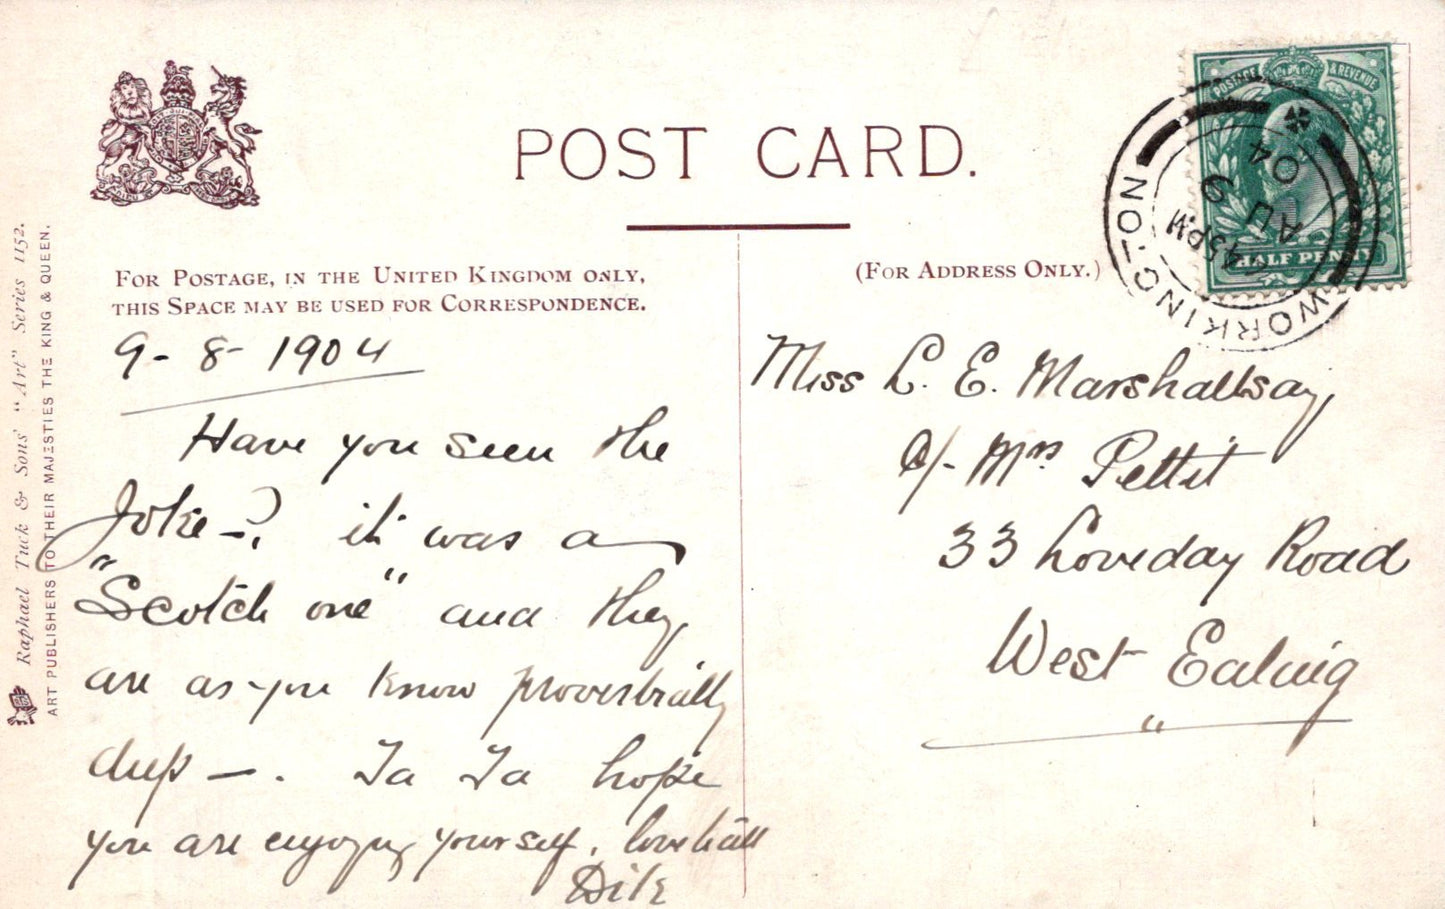 POST CARD.
FOR POSTAGE, IN THE UNITED KINGDOM ONLY,
THIS SPACE MAY BE USED FOR CORRESPONDENCE.
(FOR ADDRESS ONLY.)
POSTAGE & REVENUE
HALF PENNY
WORKINGTON
45 PM
AU 9
04
Raphael Tuck & Sons' "Art" Series 1152.
ART PUBLISHERS TO THEIR MAJESTIES THE KING & QUEEN.
9-8-1904
Have you seen the
Joke-? it was a
"Scotch one" and they
are as you know proverbially
deep -. Ta Ta hope
you are enjoying yourself,
Miss L. E. Marshallsay
c/- Mrs Pettit
33 Loveday Road
West Ealing